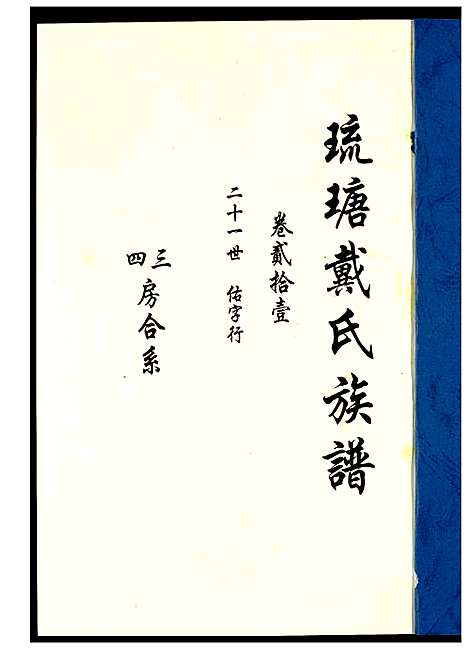 琉瑭戴氏族譜
卷貳拾壹
二十一世 佑字行
三四房合系